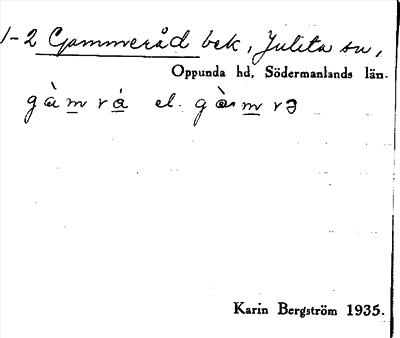 1-2 Gammeråd bek, Julita sn,
Oppunda hd, Södermanlands län.
gàm rá el. gàm rə
Karin Bergström 1935.